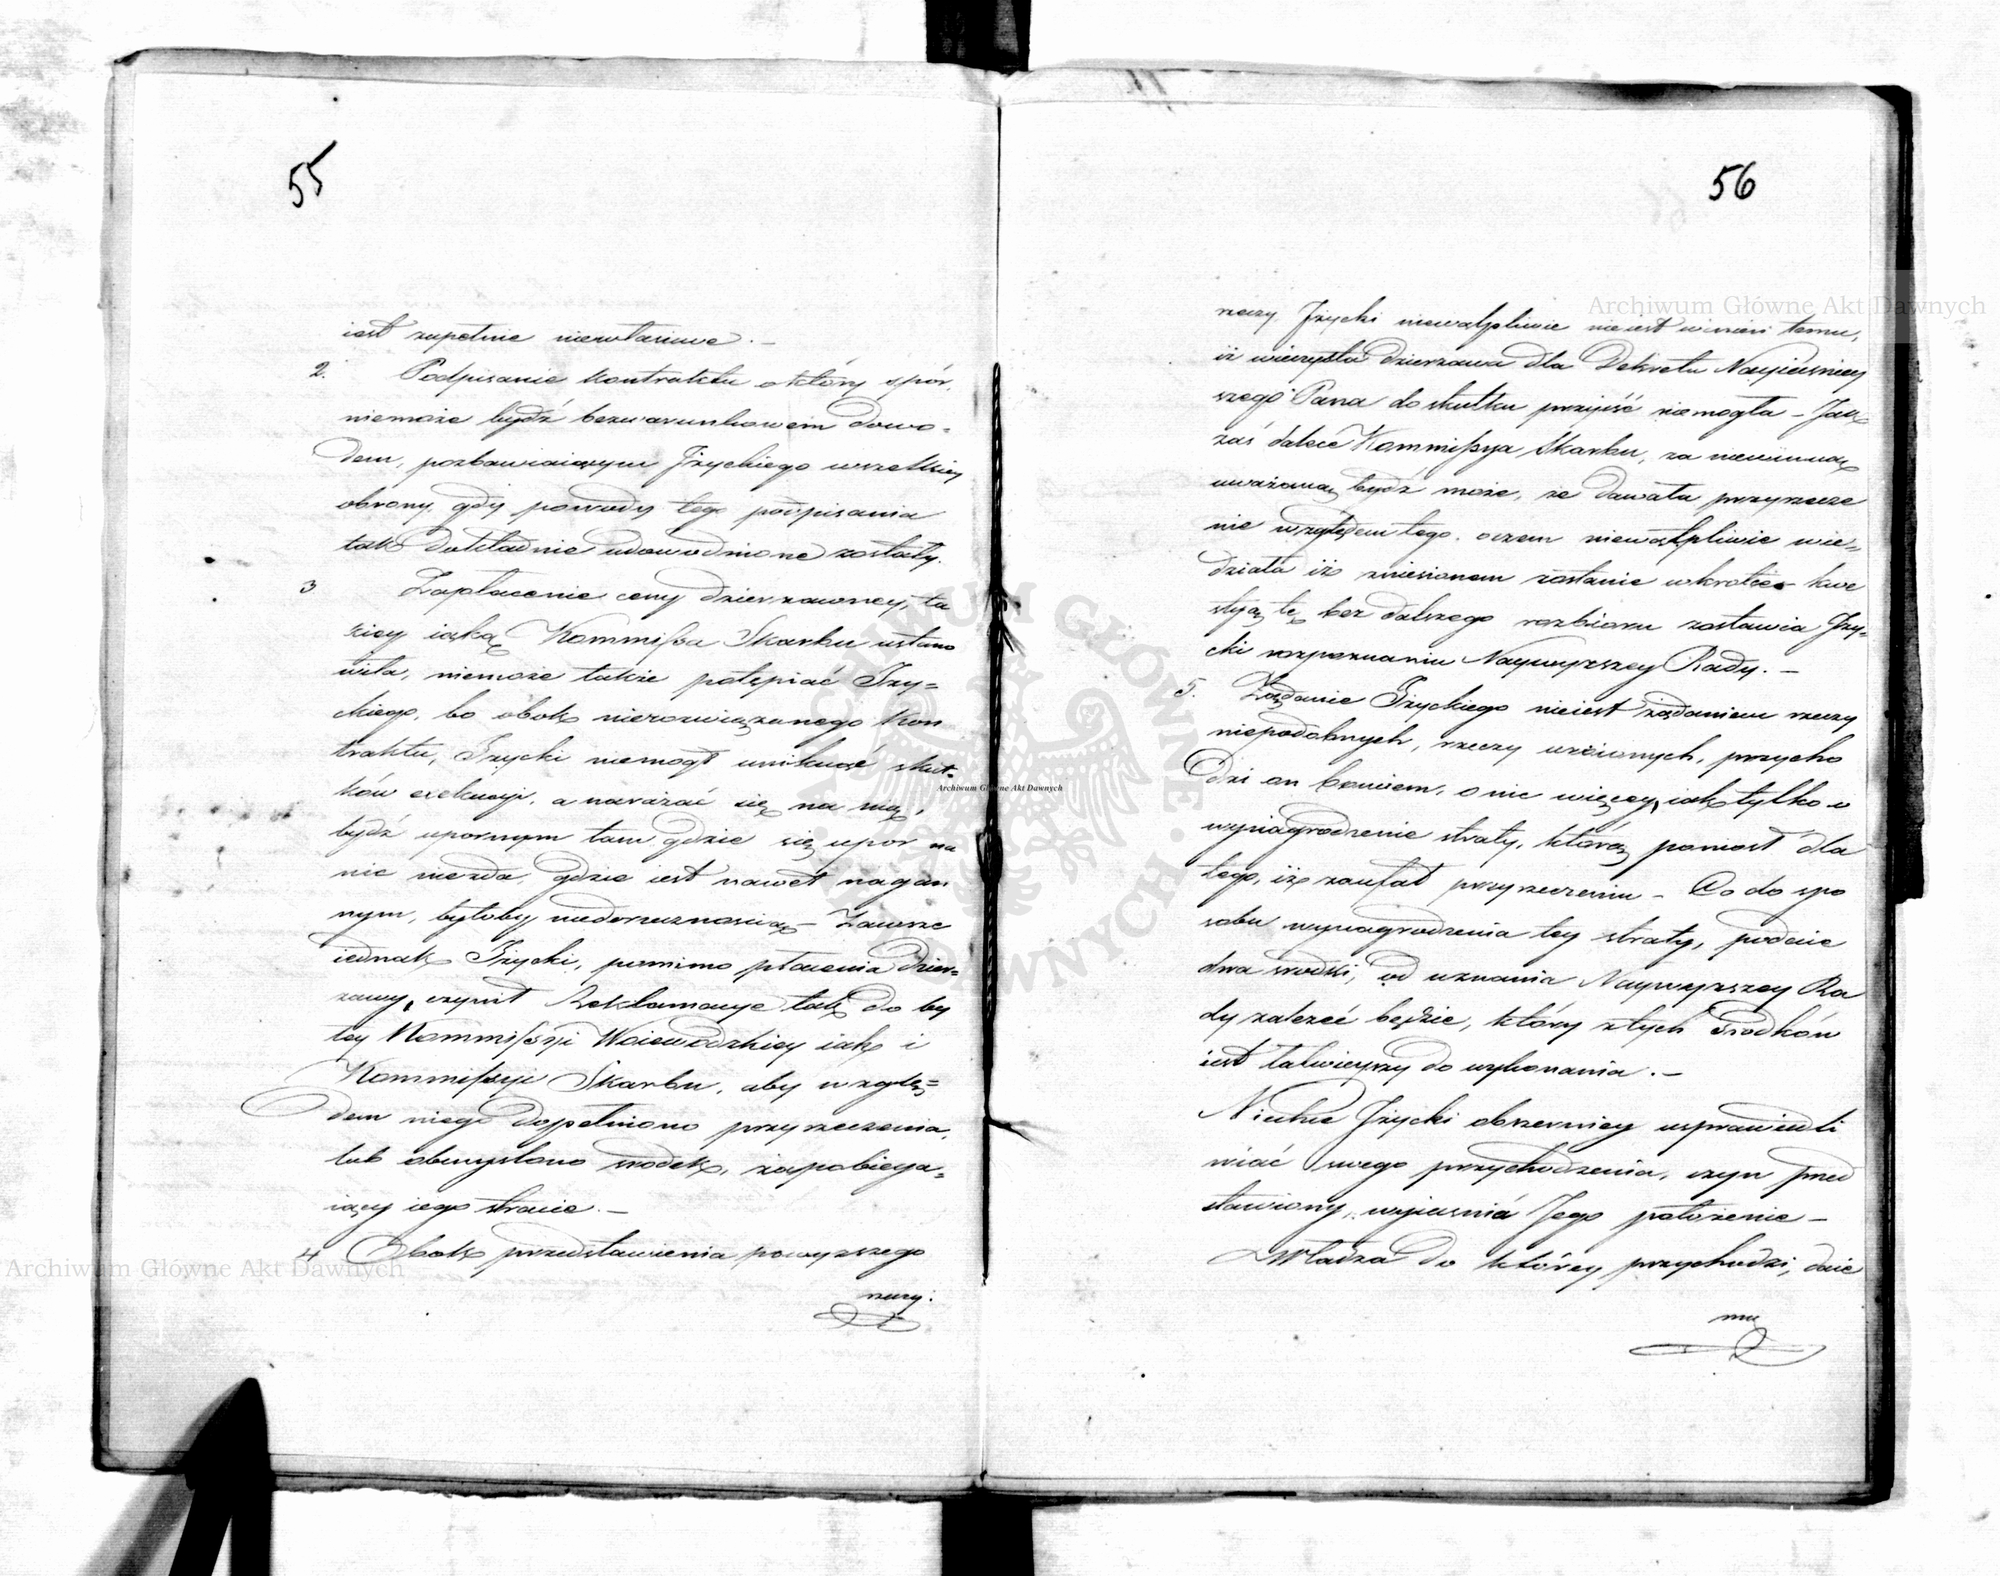 55
iest zupełnie niewłasciwe. –
2. Podpisanie kontraktu o który spór,
niemoże bydź bezwarunkowem dowo=
dem, pozbawiaiącym Jżyckiego wszelkiey
obrony, gdy powody tego podpisania
tak dokładnie udowodnione zostały.
3 Zapłacenie ceny dzierzawney, ta
kiey iaką Kommissya Skarbu ustano
wiła, niemoże także potępiać Jży=
ckiego, bo obok nierozwiązanego kon
traktu, Jżycki niemogł uniknąć skut=
ków exekucyi, a narażać się na nią,
bydź upornym tam gdzie się upor na
nic niezda, gdzie iest nawet nagan
nym, byłoby niedorzecznoscią – Zawsze
iednak Jżycki, pomimo płacenia dzier=
zawy, czynił Reklamacye tak do by
łey Kommissyi Woiewodzkiey iak i
Kommissyi Skarbu, aby wzglę=
dem niego dopełniono przyrzeczenia,
lub obmyslono srodek, zapobiega=
iący iego stracie. –
4 Obok przedstawienia powyzszego
rzeczy.
56
rzeczy Jżycki niewątpliwie nieiest winien temu,
iż wieczysta dzierzawa dla Dekretu Nayiasniey
szego Pana do skutku przyiść niemogła – Jak
zaś dalece Kommissya Skarbu, za niewinną
uważaną bydź może, że dawała przyrzecze
nie względem tego, oczem niewątpliwie wie=
działa iż zniesionem zostanie wkrotce – kwe
styą tę bez dalszego rozbioru zostawia Jży=
cki rozpoznaniu Naywyzszey Rady. –
5. Żądanie Jżyckiego nieiest żądaniem rzeczy
niepodobnych, rzeczy uroionych, przycho
dzi on bowiem, o nic więcey, iak tylko o
wynagrodzenie straty, którą poniosł dla
tego, iż zaufał przyrzeczeniu – Co do spo
sobu wynagrodzenia tey straty, podaie
dwa srodki, od uznania Naywyzszey Ra
dy zalezeć będzie, który z tych srodków
iest łatwieyszy do wykonania. –
Niechce Jżycki obszerniey usprawiedli
wiać swego przychodzenia, czyn przed
stawiony, wyiasnia Jego położenie –
Władza do którey przychodzi, daie
mu
Archiwum Główne Akt Dawnych
Archiwum Główne Akt Dawnych
Archiwum Główne Akt Dawnych
ARCHIWUM GŁÓWNE AKT DAWNYCH